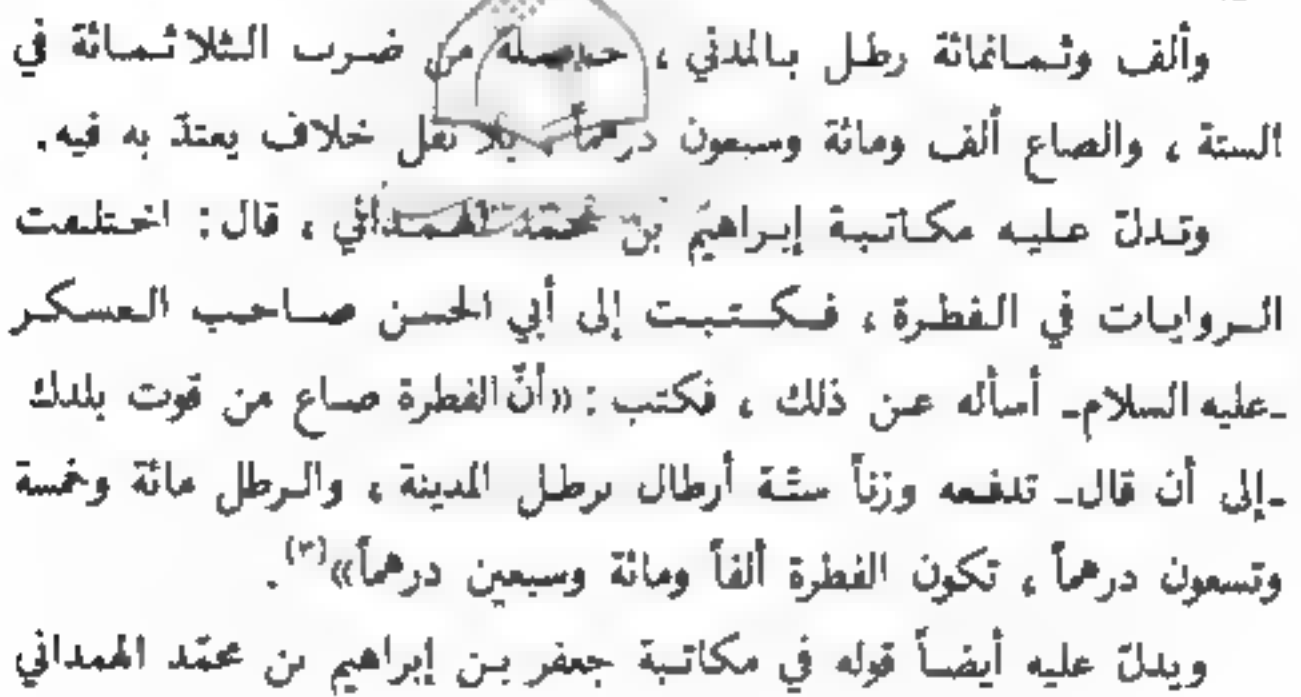 وألف وثمانمائة رطل بالمدني ، حاصلة من ضرب الثلاثمائة في
الستة ، والصاع ألف ومائة وسبعون درهماً بلا نقل خلاف يعتدّ به فيه.
وتدلّ عليه مكاتبة إبراهيم بن محمّد الهمداني ، قال: اختلفت
الروايات في الفطرة ، فكتبت إلى أبي الحسن صاحب العسكر
ـعليه السلامـ أسأله عن ذلك ، فكتب: «أنّ الفطرة صاع من قوت بلدك
ـإلى أن قالـ تدفعه وزناً ستّة أرطال برطل المدينة ، والرطل مائة وخمسة
وتسعون درهماً ، تكون الفطرة ألفاً ومائة وسبعين درهماً»(٣).
ويدلّ عليه أيضاً قوله في مكاتبة جعفر بن إبراهيم بن محمّد الهمداني